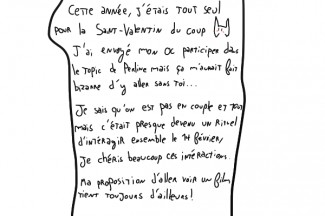 Cette année, j'étais tout seul
pour la Saint-Valentin du coup
J'ai envoyé mon OC participer dans
le topic de Perline mais ça m'aurait fait
bizarre d'y aller sans toi...
Je sais qu'on est pas en couple et tout
mais c'était presque devenu un rituel
d'intéragir ensemble le 14 février
Je chéris beaucoup ces intéraction.
Ma proposition d'aller voir un film
tient toujours d'ailleurs!